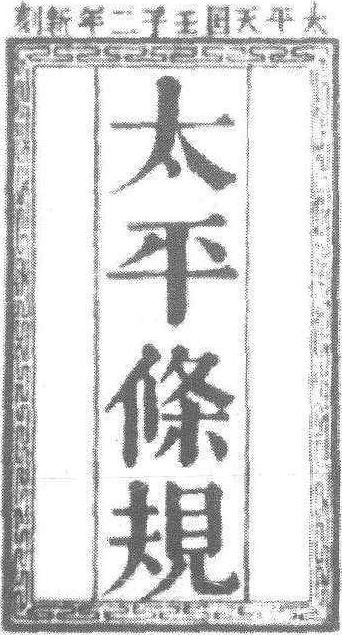 太平天囯壬子二年新刻
太平條規